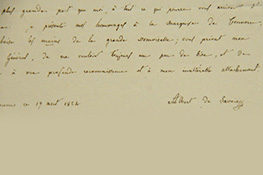 plus grande part que moi, à tout ce qui pourra vous arriver
je présente mes hommages à la marquise de
les mains de la grande demoiselle; vous priant mon
Général, de me vouloir toujours un peu de bien, et
à ma profonde reconnaissance et à mon inaltérable attachement.
17 avril 1822
Albert de